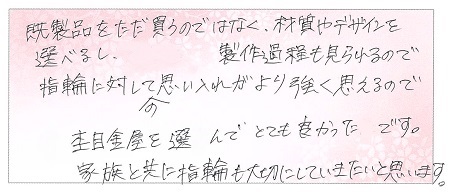 既製品をただ買うのではなく、材質やデザインを
選べるし、製作過程も見られるので
指輪に対しての思い入れがより強く思えるので
杢目金屋を選んでとても良かったです。
家族と共に指輪も大切にしていきたいと思います。